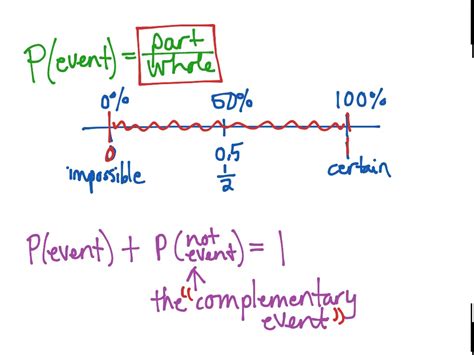 P(event) = part/whole
0% 50% 100%
0 0.5
impossible 1/2 certain
P(event) + P(not event) = 1
the "complementary
event"